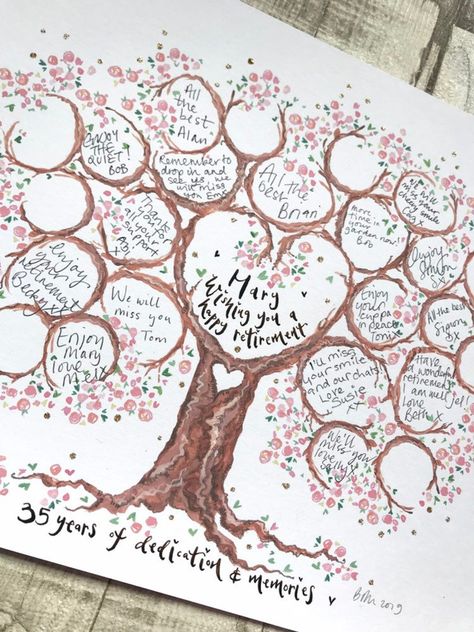 All
the
best
Alan
ENJOY
THE
QUIET!
BOB
Remember to
drop in and
see us, we
will miss
you
All the
best
Brian
Thanks
all your
support
We will
miss you
Tom
enjoy
your
retirement
Becky xx
Enjoy
Mary
love
Mel x
Mary
Wishing you a
happy retirement
more
time in
your
garden now!
Bob
will
miss your
cheery smile
Enjoy
Enjoy
your
cuppa
in peace
All the
best
I'll miss
your smile
and our chats!
Love
Susie
xx
Have
a wonderful
retirement
am well jel!
Love
Beth x
We'll
miss you
love
Sally x
35 years of dedication & memories
2019